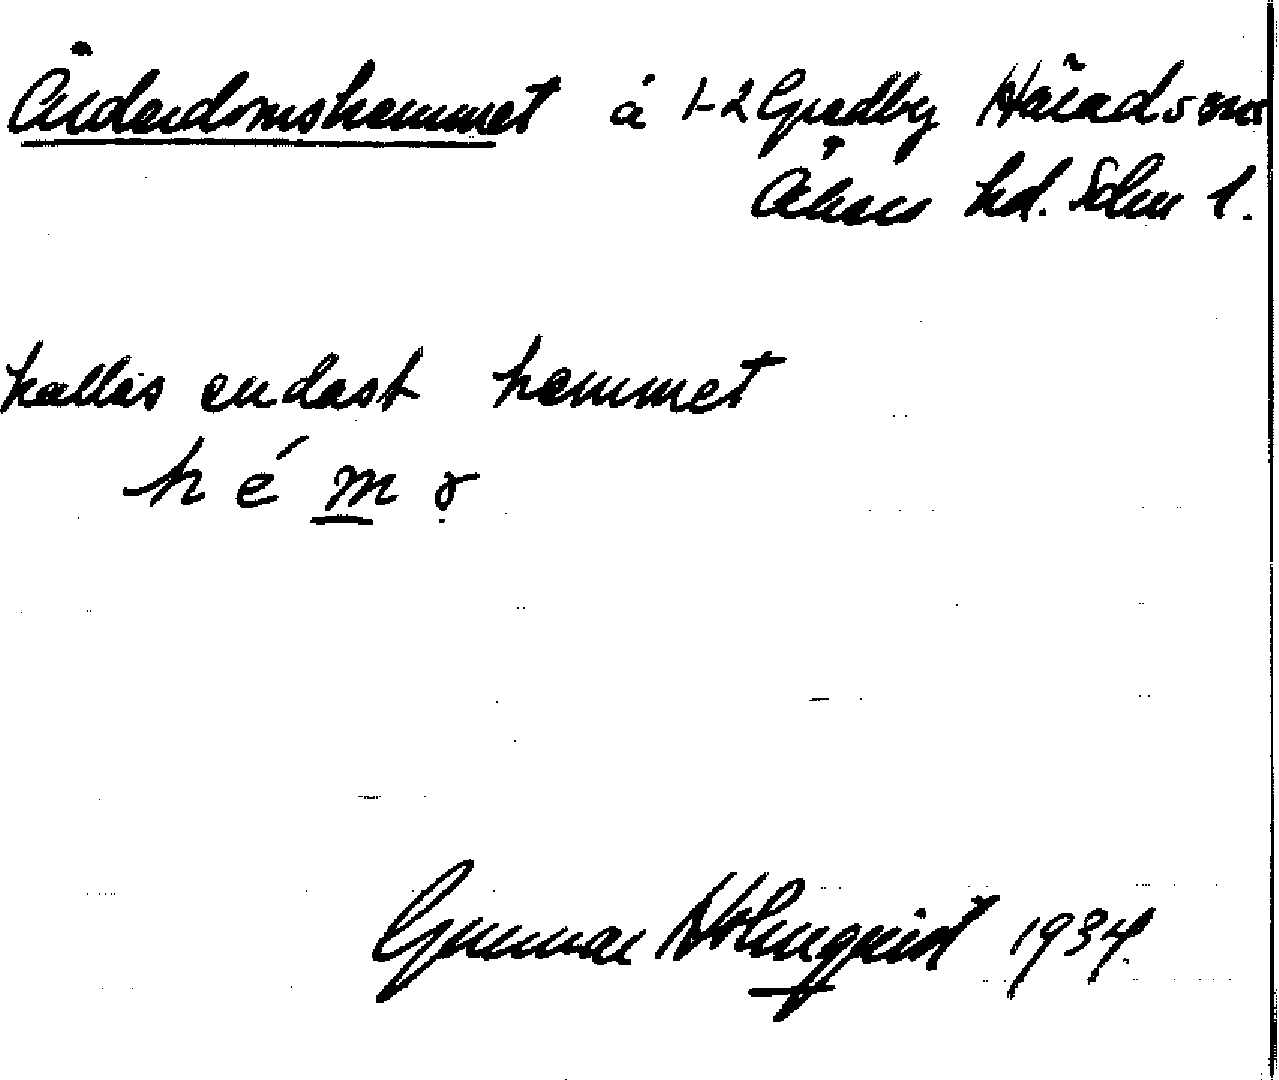 Ålderdomshemmet å 1-2 Gredby Härads sn
Åkers hd. Södm l.
kallas endast hemmet
h é m ɤ
Gunnar Holmqvist 1934.